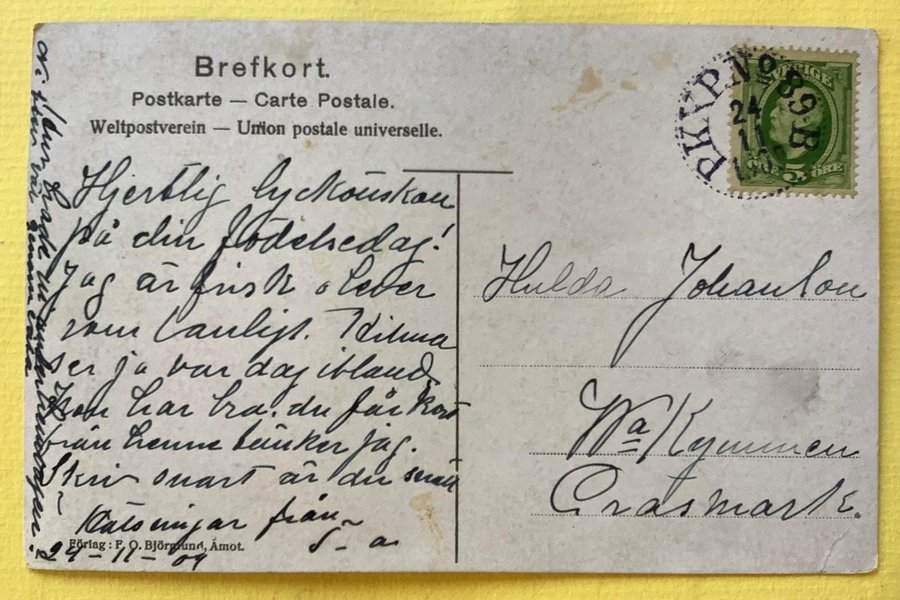 Brefkort.
Postkarte — Carte Postale.
Weltpostverein — Union postale universelle.
PKXP No 89 B
24
11
SVERIGE
FEM 5 ÖRE
Hjertlig lyckönskan
på din födelsedag!
Jag är frisk o lever
som vanligt. Hilma
ser ja var dag ibland
hon har bra. du får kort
från henne tänker jag.
Skriv snart är du snäll
Hälsningar från
S-a
24-11-09
Förlag: P. O. Björnlund, Åmot.
Hulda Johanson
Wa Kymmen
Gräsmark.